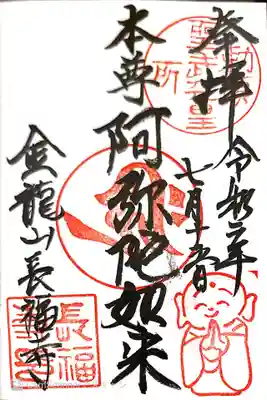 奉拝
令和二年
七月十五日
聖武天皇
所
本尊 阿弥陀如来
金龍山長福寺
長福